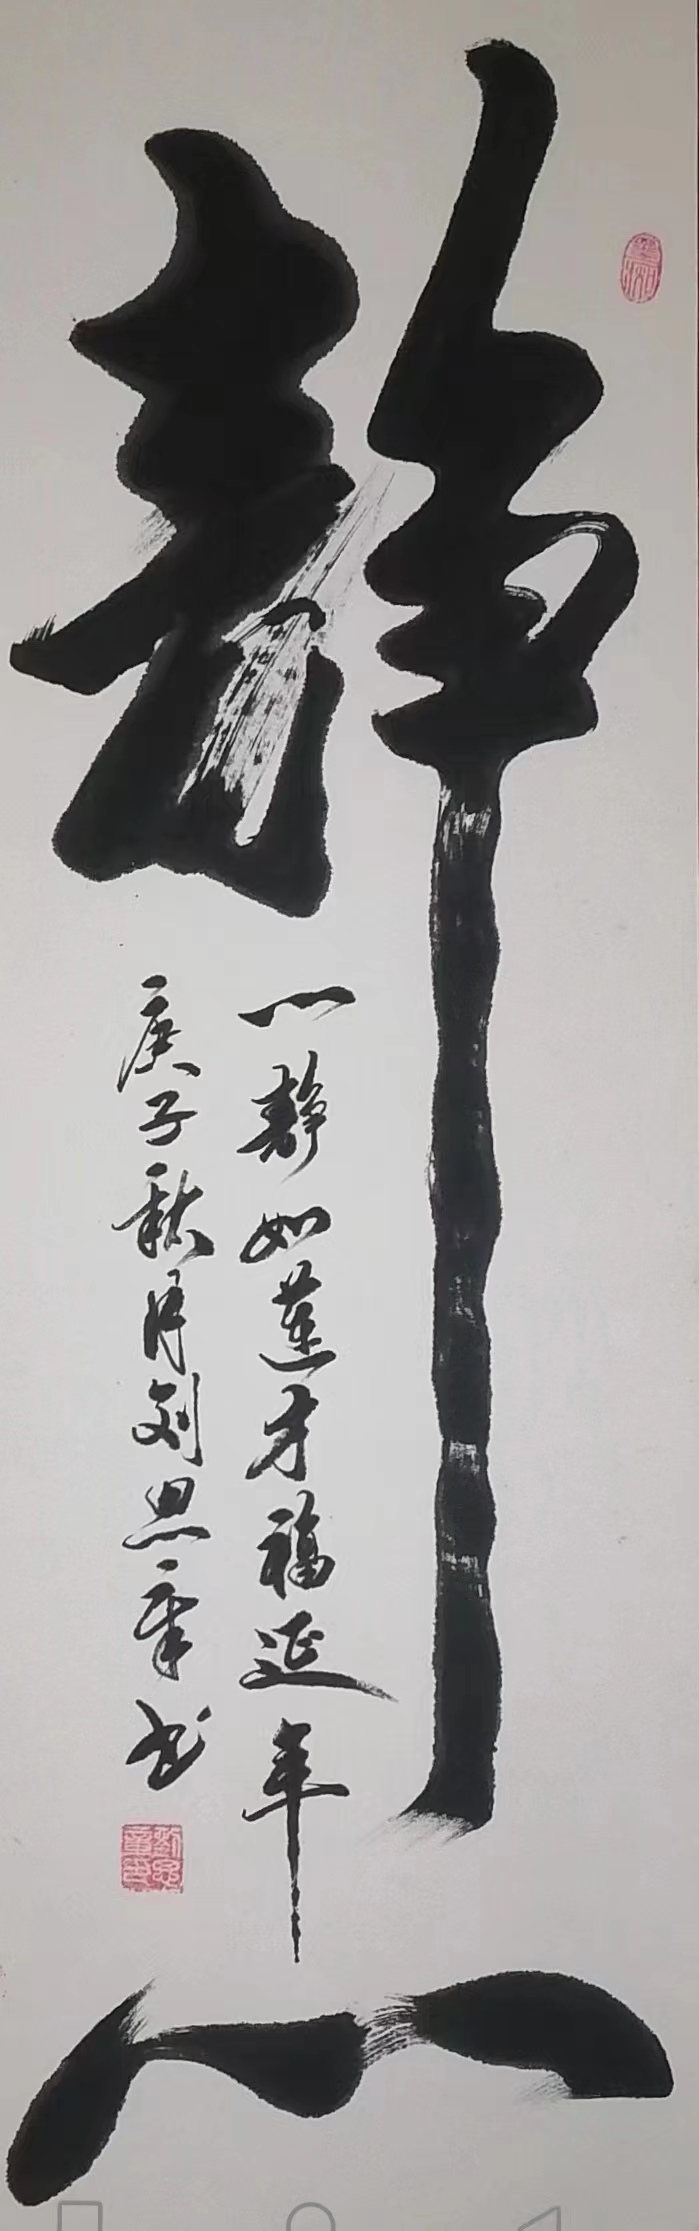 静心
心静如莲才福延年
庚子秋月刘思章书